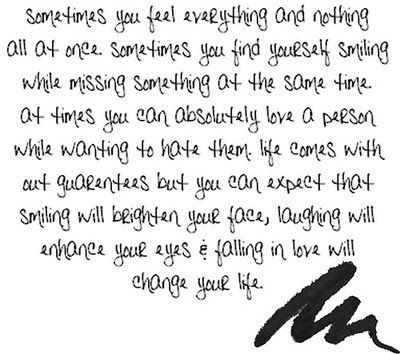 sometimes you feel everything and nothing
all at once. sometimes you find yourself smiling
while missing something at the same time.
at times you can absolutely love a person
while wanting to hate them. life comes with
out guarentees but you can expect that
smiling will brighten your face, laughing will
enhance your eyes & falling in love will
change your life.